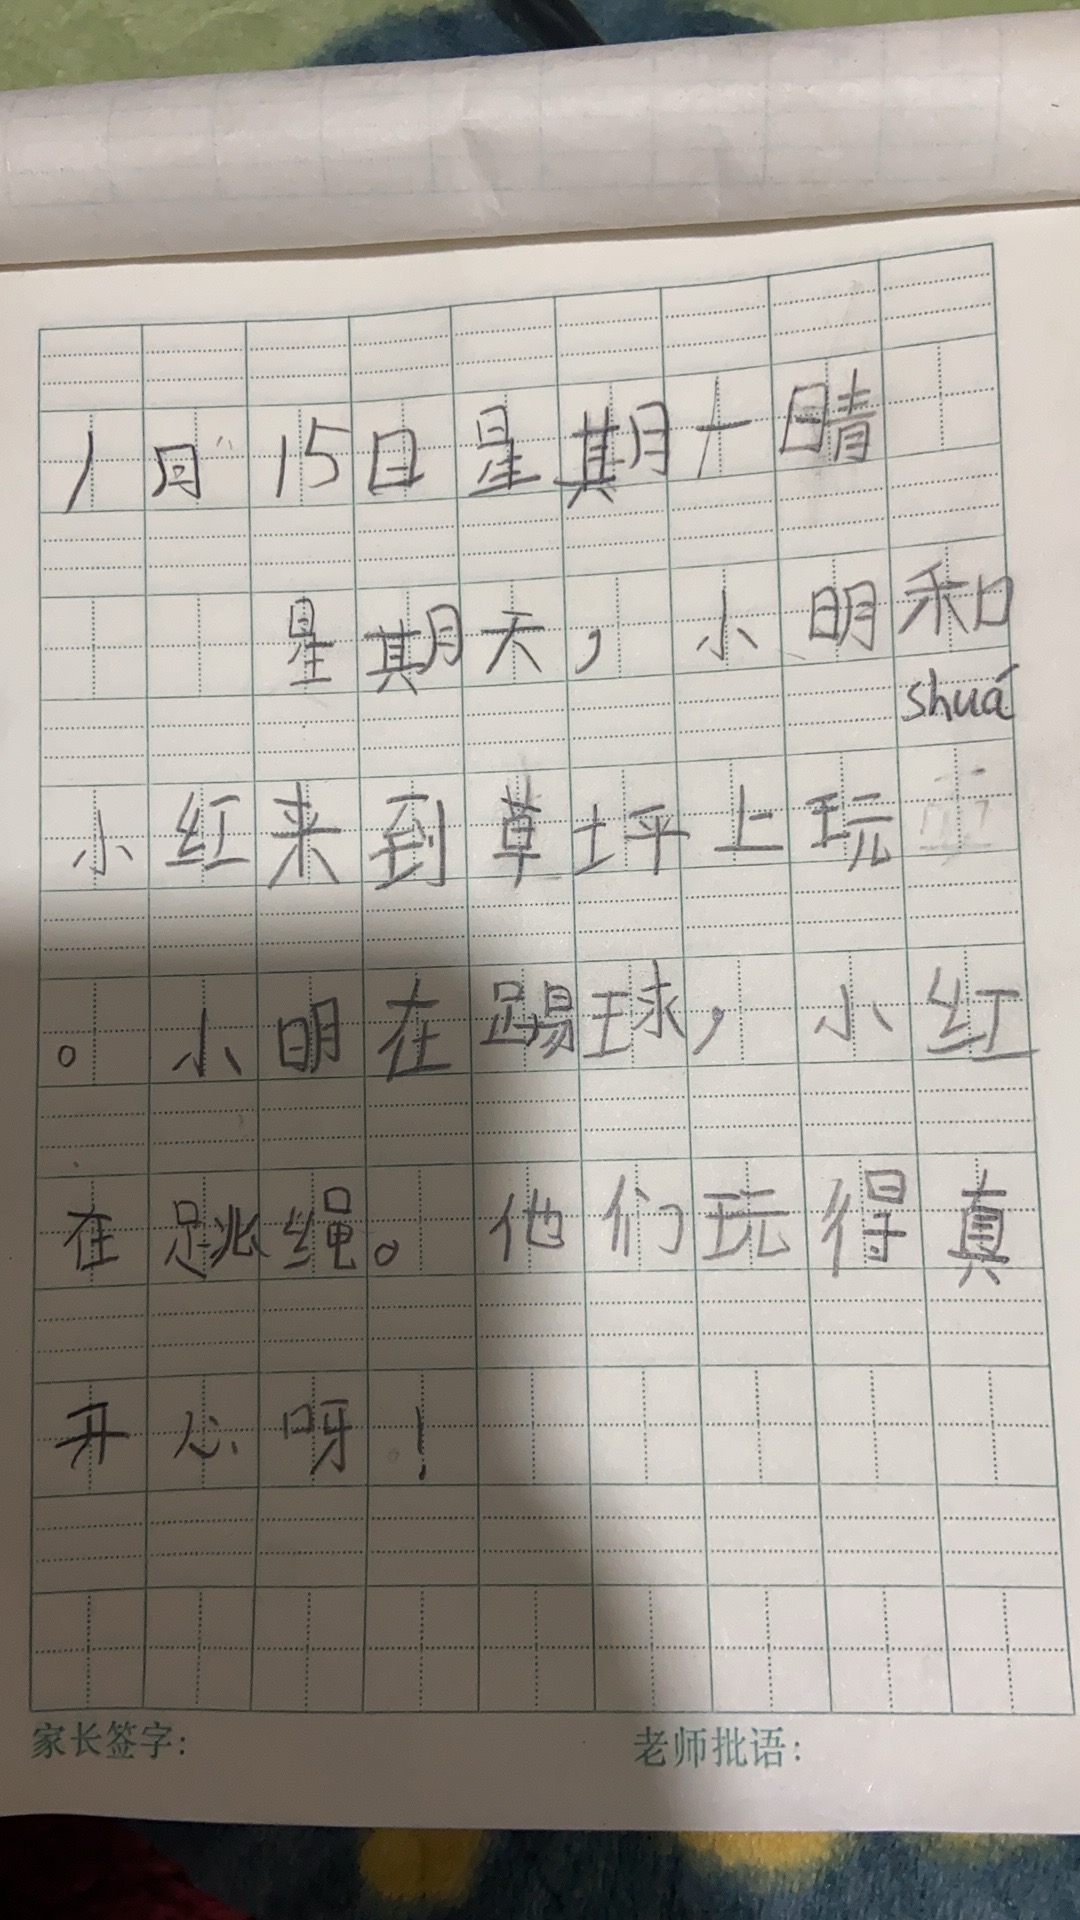 1月15日星期一晴
星期天，小明和
shuá
小红来到草坪上玩
。小明在踢球，小红
在跳绳。他们玩得真
开心呀！
家长签字： 老师批语：